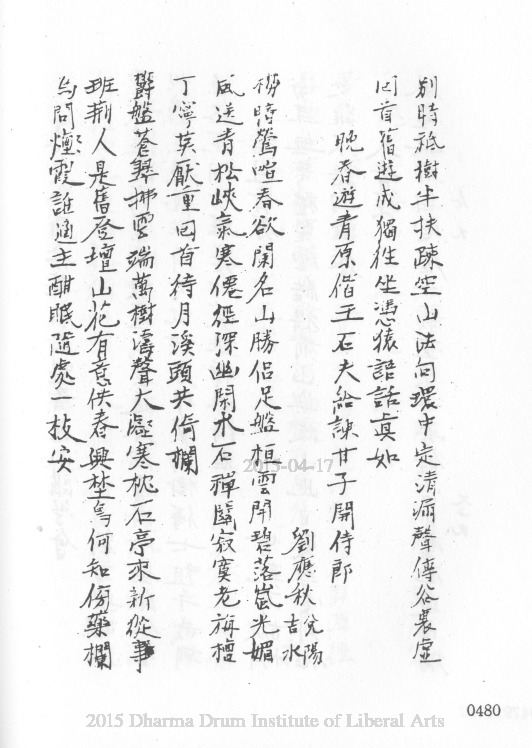 別時祇樹半扶疎空山法向環中定清漏聲傳谷裏虛
回首舊遊成獨往坐憑猿語話真如
晚春遊青原偕王石夫給諫甘子開侍郎
劉應秋 兌陽 吉水
鶯喧春欲闌名山勝侶足盤桓雲開碧落嵐光媚
風送青松峽氣寒僊徑深幽閒水石禪關寂寞老旃檀
丁寧莫厭重回首待月溪頭共倚欄
欝盤蒼翠拂雲端萬樹濤聲大壑寒枕石亭來新從事
班荊人是舊登壇山花有意供春興埜鳥何知傍藥欄
為問煙霞誰適主酣眠隨處一枝安
2015-04-17
0480
2015 Dharma Drum Institute of Liberal Arts